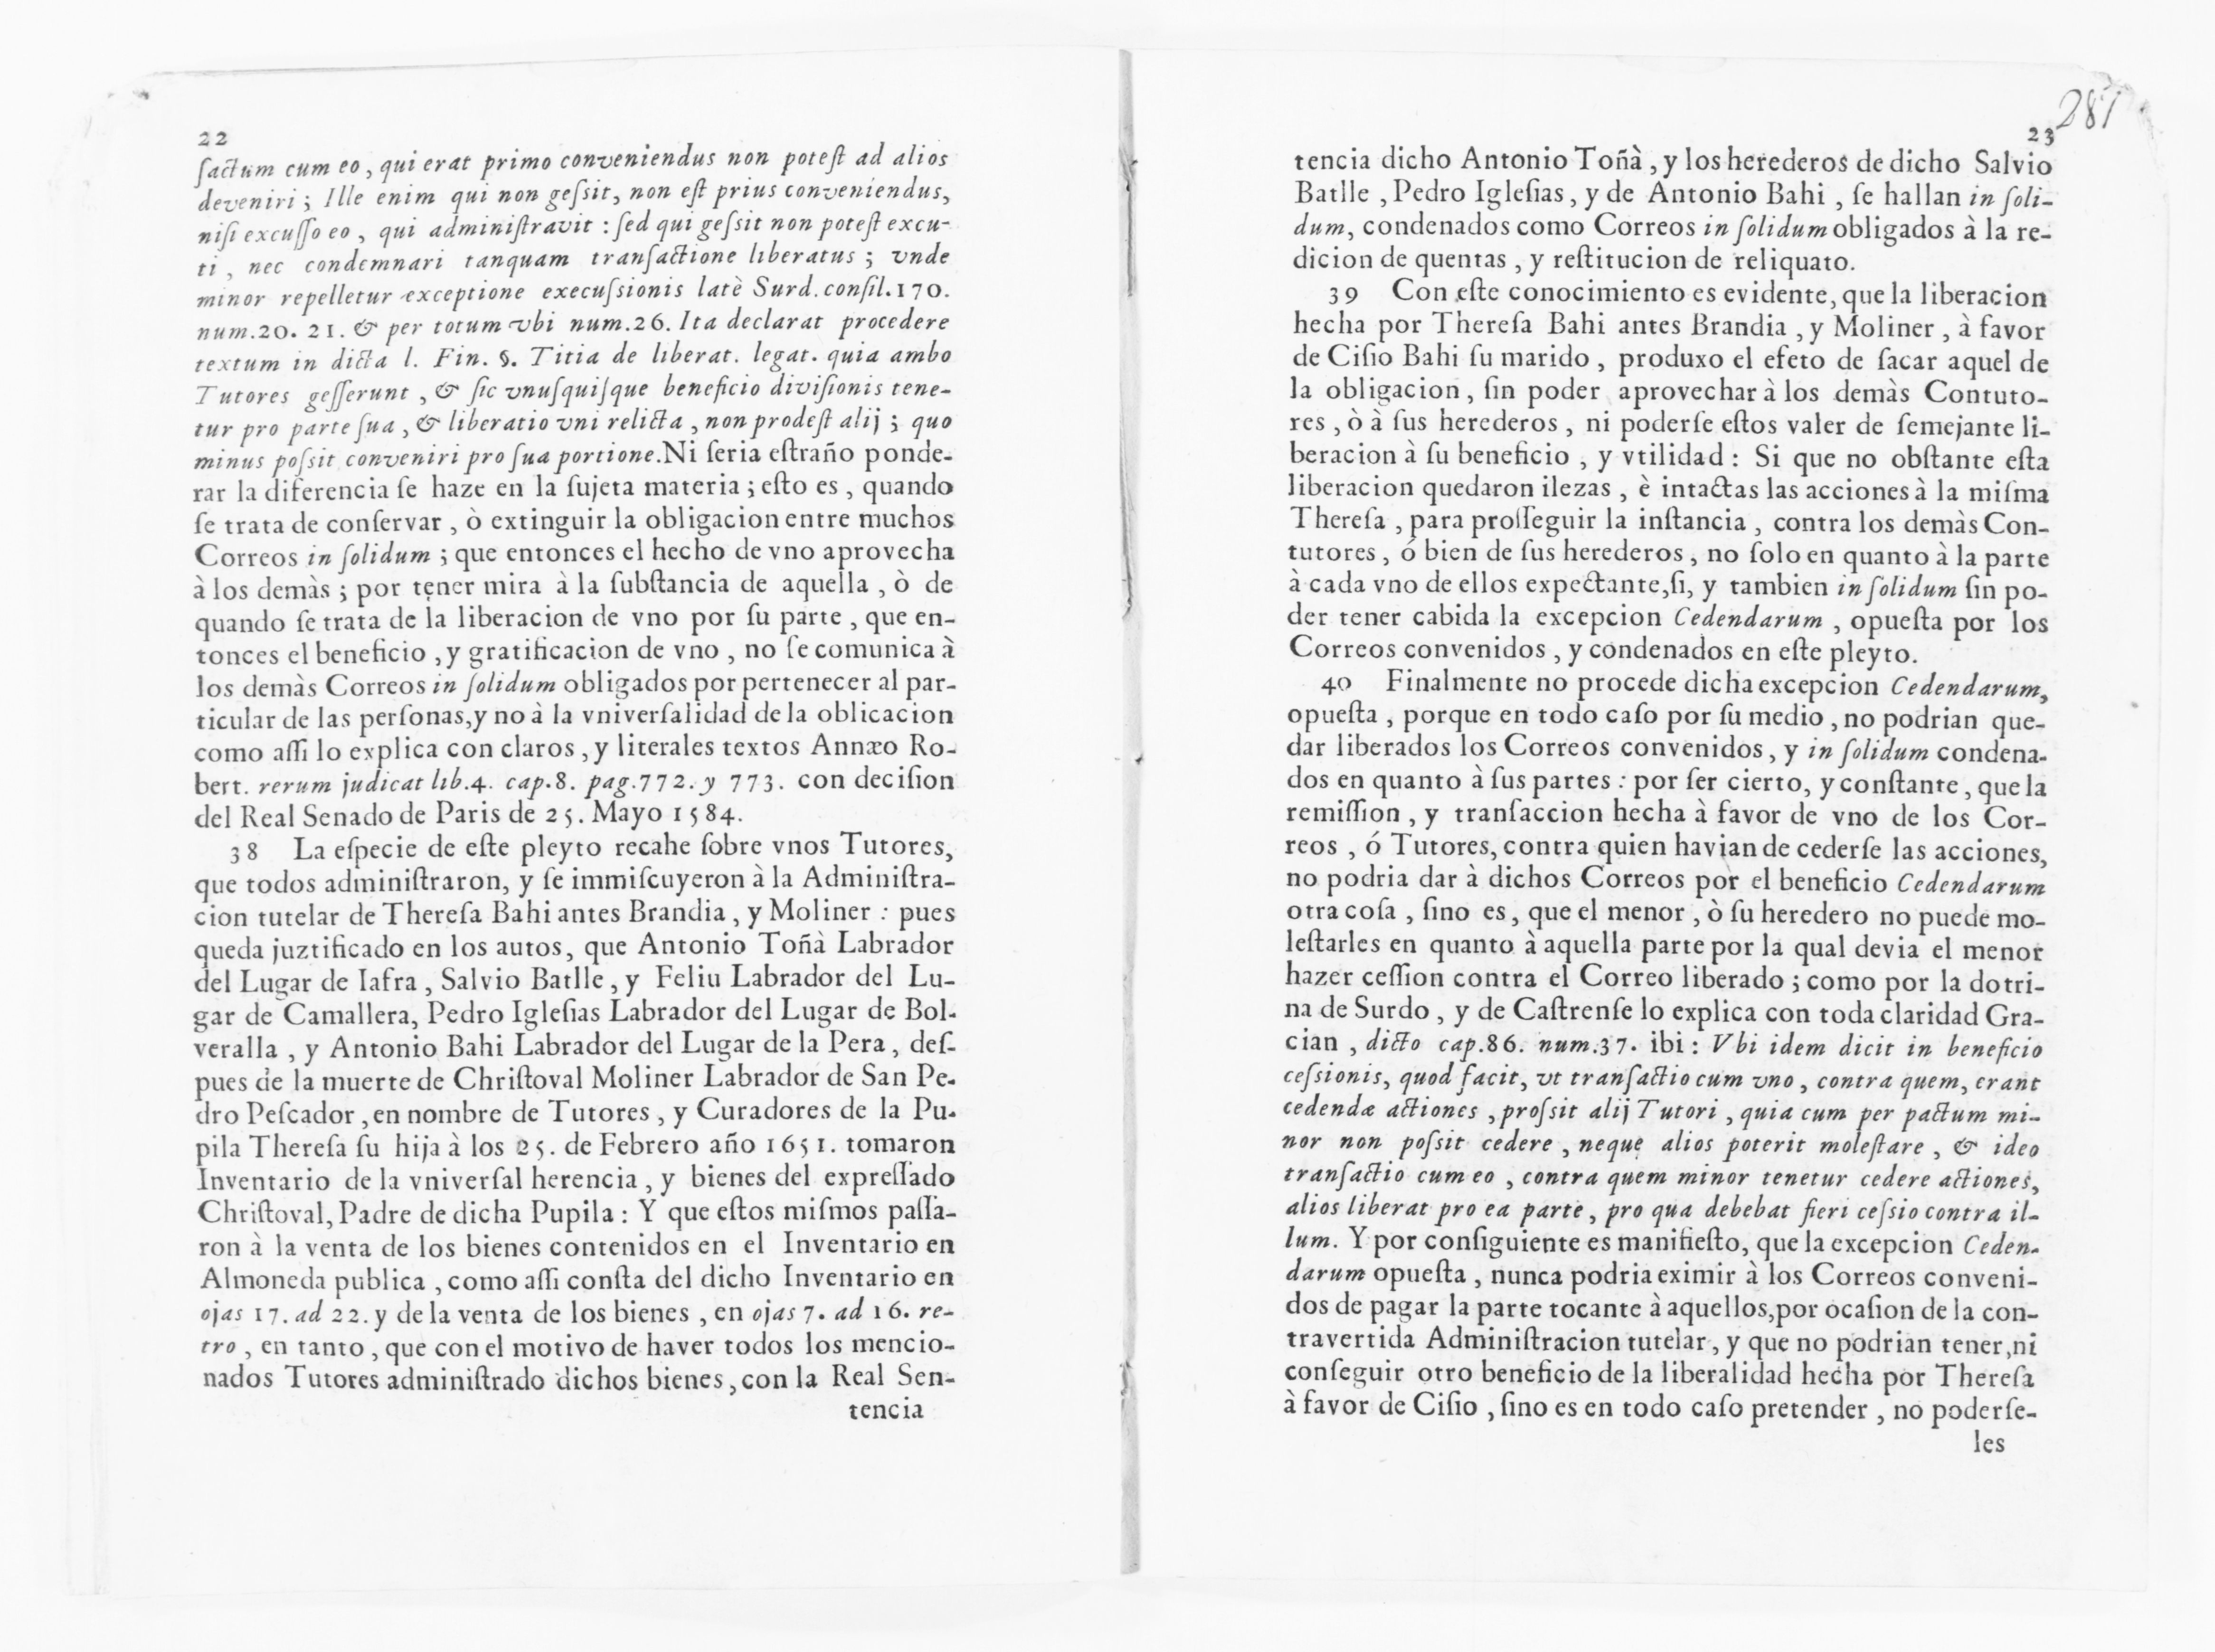 22
factum cum eo, qui erat primo conveniendus non poteſt ad alios
deveniri; Ille enim qui non geſsit, non eſt prius conveniendus,
niſi excuſſo eo, qui adminiſtravit: ſed qui geſsit non poteſt excu-
ti, nec condemnari tanquam tranſactione liberatus; vnde
minor repelletur exceptione execuſsionis latè Surd. conſil.170.
num.20. 21. & per totum vbi num.26. Ita declarat procedere
textum in dicta l. Fin. §. Titia de liberat. legat. quia ambo
Tutores geſſerunt, & ſic vnuſquiſque beneficio diviſionis tene-
tur pro parte ſua, & liberatio vni relicta, non prodeſt alij; quo
minus poſsit conveniri pro ſua portione. Ni ſeria eſtraño ponde-
rar la diferencia ſe haze en la ſujeta materia; eſto es, quando
ſe trata de conſervar, ò extinguir la obligacion entre muchos
Correos in ſolidum; que entonces el hecho de vno aprovecha
à los demàs; por tener mira à la ſubſtancia de aquella, ò de
quando ſe trata de la liberacion de vno por ſu parte, que en-
tonces el beneficio, y gratificacion de vno, no ſe comunica à
los demàs Correos in ſolidum obligados por pertenecer al par-
ticular de las perſonas, y no à la vniverſalidad de la oblicacion
como aſſi lo explica con claros, y literales textos Annæo Ro-
bert. rerum judicat lib.4. cap.8. pag.772. y 773. con deciſion
del Real Senado de Paris de 25. Mayo 1584.
38 La eſpecie de eſte pleyto recahe ſobre vnos Tutores,
que todos adminiſtraron, y ſe immiſcuyeron à la Adminiſtra-
cion tutelar de Thereſa Bahi antes Brandia, y Moliner: pues
queda juztificado en los autos, que Antonio Toñà Labrador
del Lugar de Iafra, Salvio Batlle, y Feliu Labrador del Lu-
gar de Camallera, Pedro Igleſias Labrador del Lugar de Bol-
veralla, y Antonio Bahi Labrador del Lugar de la Pera, deſ-
pues de la muerte de Chriſtoval Moliner Labrador de San Pe-
dro Peſcador, en nombre de Tutores, y Curadores de la Pu-
pila Thereſa ſu hija à los 25. de Febrero año 1651. tomaron
Inventario de la vniverſal herencia, y bienes del expreſſado
Chriſtoval, Padre de dicha Pupila: Y que eſtos miſmos paſſa-
ron à la venta de los bienes contenidos en el Inventario en
Almoneda publica, como aſſi conſta del dicho Inventario en
ojas 17. ad 22. y de la venta de los bienes, en ojas 7. ad 16. re-
tro, en tanto, que con el motivo de haver todos los mencio-
nados Tutores adminiſtrado dichos bienes, con la Real Sen-
tencia
281
23
tencia dicho Antonio Toñà, y los herederos de dicho Salvio
Batlle, Pedro Igleſias, y de Antonio Bahi, ſe hallan in ſoli-
dum, condenados como Correos in ſolidum obligados à la re-
dicion de quentas, y reſtitucion de reliquato.
39 Con eſte conocimiento es evidente, que la liberacion
hecha por Thereſa Bahi antes Brandia, y Moliner, à favor
de Ciſio Bahi ſu marido, produxo el efeto de ſacar aquel de
la obligacion, ſin poder aprovechar à los demàs Contuto-
res, ò à ſus herederos, ni poderſe eſtos valer de ſemejante li-
beracion à ſu beneficio, y vtilidad: Si que no obſtante eſta
liberacion quedaron ilezas, è intactas las acciones à la miſma
Thereſa, para proſſeguir la inſtancia, contra los demàs Con-
tutores, ó bien de ſus herederos, no ſolo en quanto à la parte
à cada vno de ellos expectante, ſi, y tambien in ſolidum ſin po-
der tener cabida la excepcion Cedendarum, opueſta por los
Correos convenidos, y condenados en eſte pleyto.
40 Finalmente no procede dicha excepcion Cedendarum,
opueſta, porque en todo caſo por ſu medio, no podrian que-
dar liberados los Correos convenidos, y in ſolidum condena-
dos en quanto à ſus partes: por ſer cierto, y conſtante, que la
remiſſion, y tranſaccion hecha à favor de vno de los Cor-
reos, ó Tutores, contra quien havian de cederſe las acciones,
no podria dar à dichos Correos por el beneficio Cedendarum
otra coſa, ſino es, que el menor, ò ſu heredero no puede mo-
leſtarles en quanto à aquella parte por la qual devia el menor
hazer ceſſion contra el Correo liberado; como por la dotri-
na de Surdo, y de Caſtrenſe lo explica con toda claridad Gra-
cian, dicto cap.86. num.37. ibi: Vbi idem dicit in beneficio
ceſsionis, quod facit, vt tranſactio cum vno, contra quem, erant
cedendæ actiones, proſsit alij Tutori, quia cum per pactum mi-
nor non poſsit cedere, neque alios poterit moleſtare, & ideo
tranſactio cum eo, contra quem minor tenetur cedere actiones,
alios liberat pro ea parte, pro qua debebat fieri ceſsio contra il-
lum. Y por conſiguiente es manifieſto, que la excepcion Ceden-
darum opueſta, nunca podria eximir à los Correos conveni-
dos de pagar la parte tocante à aquellos, por ocaſion de la con-
travertida Adminiſtracion tutelar, y que no podrian tener, ni
conſeguir otro beneficio de la liberalidad hecha por Thereſa
à favor de Ciſio, ſino es en todo caſo pretender, no poderſe-
les